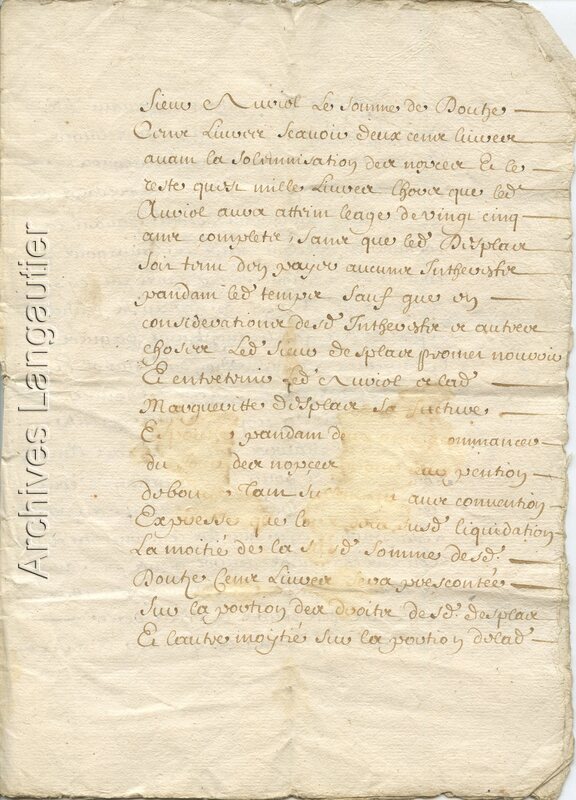 Sieur Auriol Le somme de Douze
Cens Livres Scavoir deux cens livres
avant la solemnisation des nopces Et le
reste quest mille Livres lhors que led.
Auriol aura attint leage de vingt cinq
ans complets, sans que led. Desplas
soit tenu den payer aucuns Inthérests
pandant led. temps sauf que en
considerations desd. Intherests et autres
choses Led. Sieur desplas promet nourir
Et entretenir led. Auriol et lad.
Margueritte desplas sa
Et pandant de commancer
du des nopces pention
de tant avec convention
Expresse que lors susd. liquidation
La moitié de la susd. somme desd.
Douze Cens Livres sera prescontée
Sur la portion des droits desd. desplas
Et lautre moytié sur la portion delad.
Archives Langautier